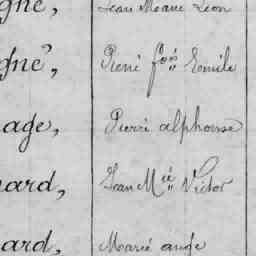 gne, Jean Marie Léon
gné, René f^çois Emile
age, Pierre alphonse
ard, Jean M^ie Victor
ard, Marie ange